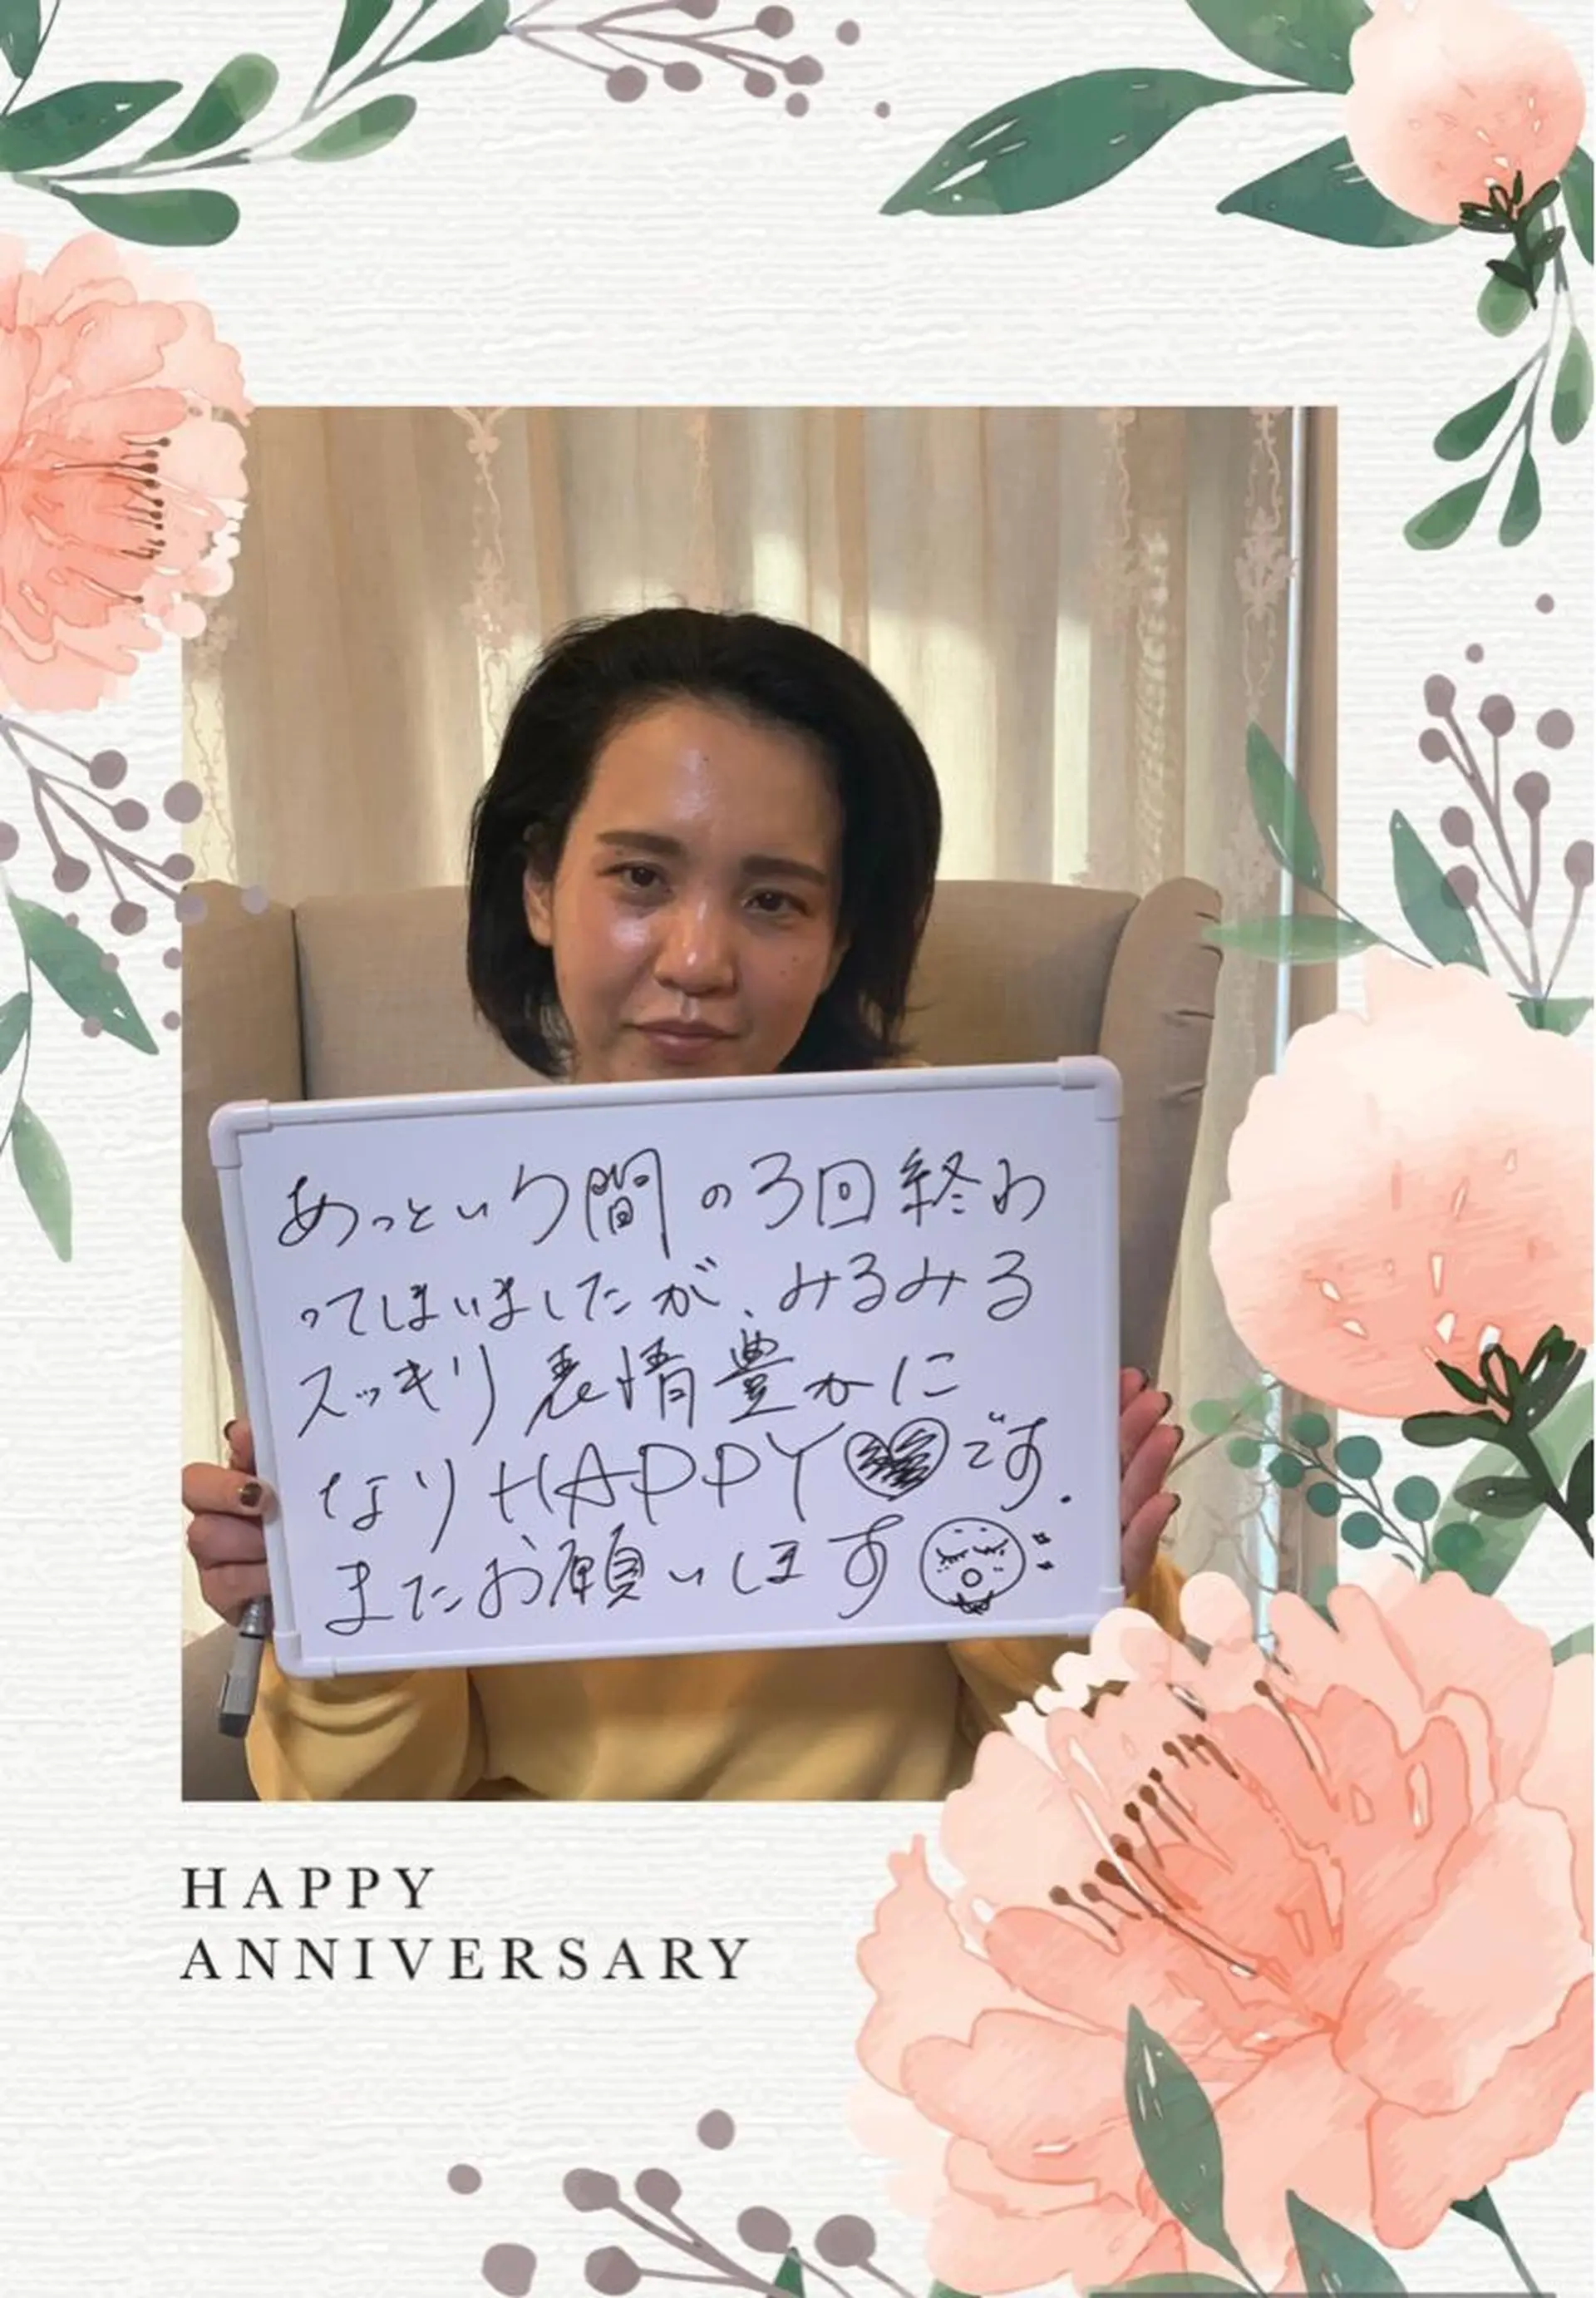 あっという間の3回終わ
ってしまいましたが、みるみる
スッキリ表情豊かに
なりHAPPY♥です.
またお願いします
HAPPY
ANNIVERSARY